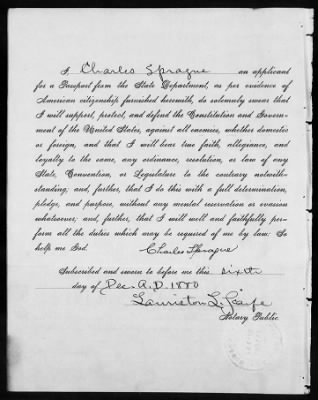 I, Charles Sprague an applicant
for a Passport from the State Department, as per evidence of
American citizenship furnished herewith, do solemnly swear that
I will support, protect, and defend the Constitution and Govern-
ment of the United States, against all enemies, whether domestic
or foreign, and that I will bear true faith, allegiance, and
loyalty to the same, any ordinance, resolution, or law of any
State, Convention, or Legislature to the contrary notwith-
standing; and, further, that I do this with a full determination,
pledge, and purpose, without any mental reservation or evasion
whatsoever; and, further, that I will well and faithfully per-
form all the duties which may be required of me by law: So
help me God.
Charles Sprague
Subscribed and sworn to before me this sixth
day of Dec. A.D. 1880
L.
Notary Public